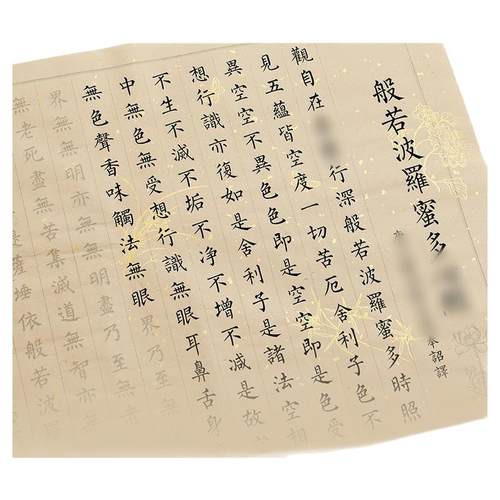 般若波羅蜜多
奉詔譯
觀自在行深般若波羅蜜多時照
見五蘊皆空度一切苦厄舍利子色不
異空空不異色色即是空空即是色受
想行識亦復如是舍利子是諸法空相
不生不滅不垢不净不增不減是故
中無色無受想行識無眼耳鼻舌身
無色聲香味觸法無眼界乃至無
界無無明亦無無明盡乃至無
無老死盡無苦集滅道無智亦無
薩埵依般若波